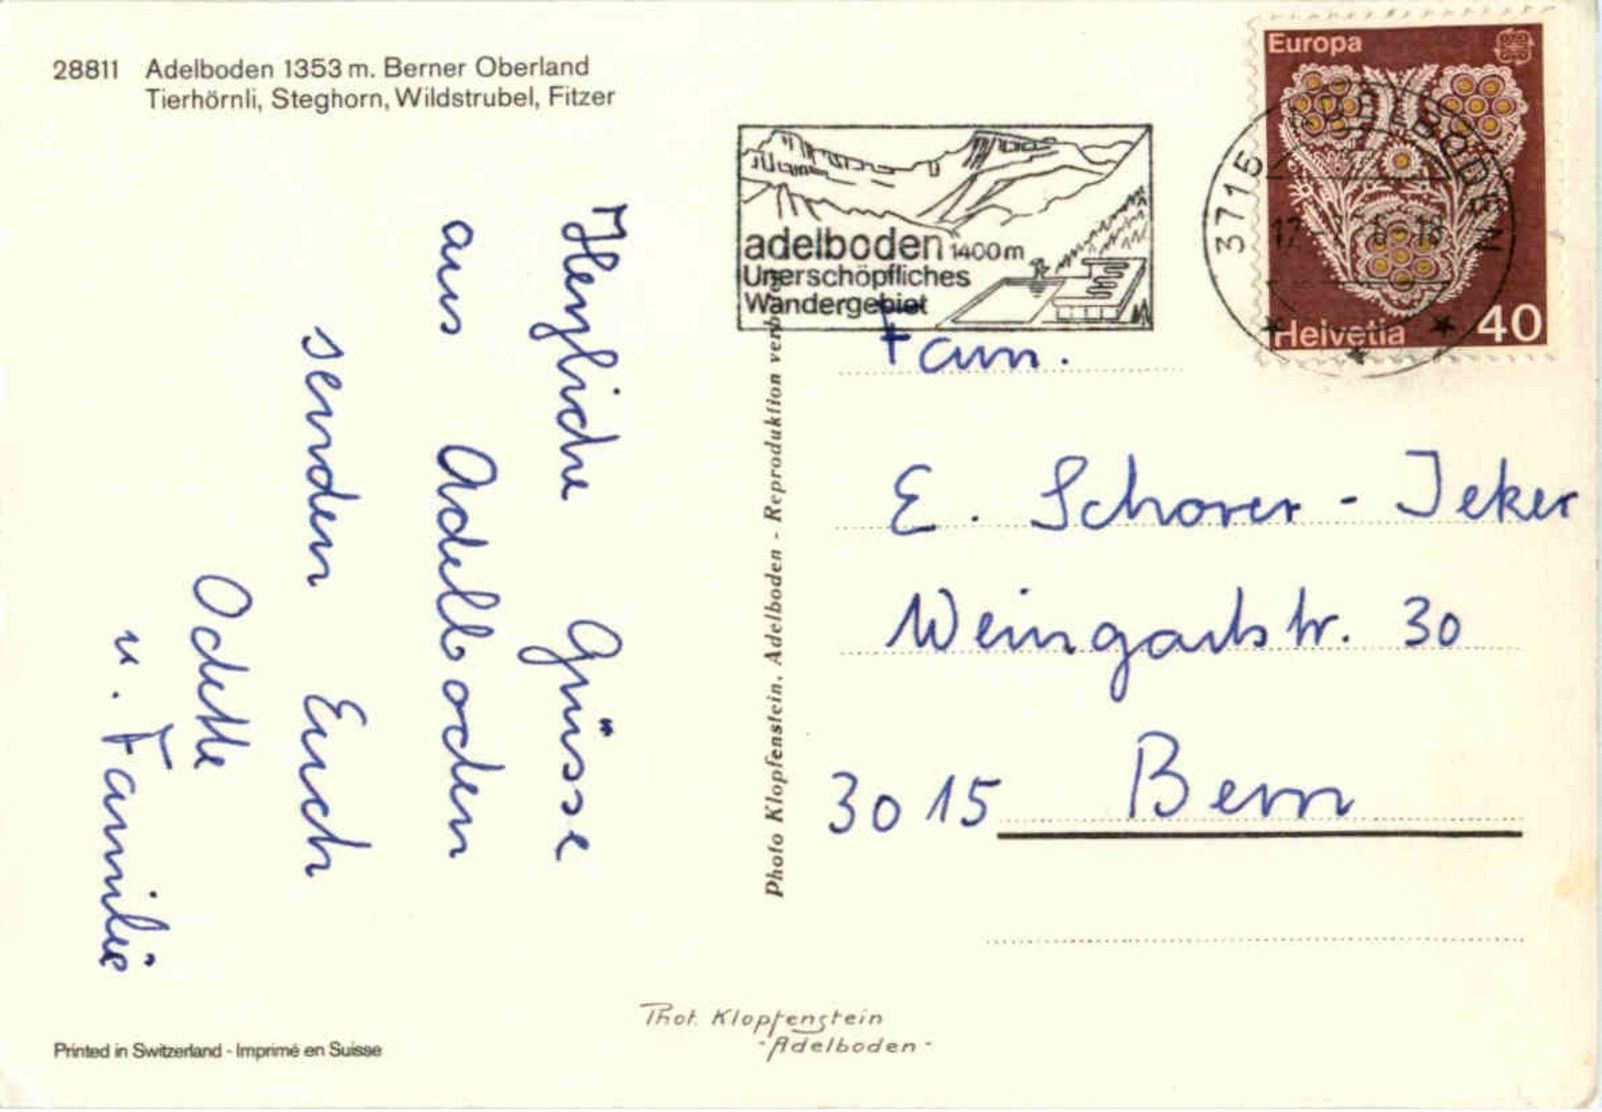 28811 Adelboden 1353 m. Berner Oberland
Tierhörnli, Steghorn, Wildstrubel, Fitzer
Herzliche Grüsse
aus Adelboden
senden Euch
Odette
u. Familie
Printed in Switzerland - Imprimé en Suisse
Photo Klopfenstein, Adelboden - Reproduktion
Phot. Klopfenstein
- Adelboden -
adelboden 1400 m
Unerschöpfliches
Wandergebiet
Europa
Helvetia 40
3715 ADELBODEN
Fam.
E. Schorer - Jeker
Weingartstr. 30
3015 Bern